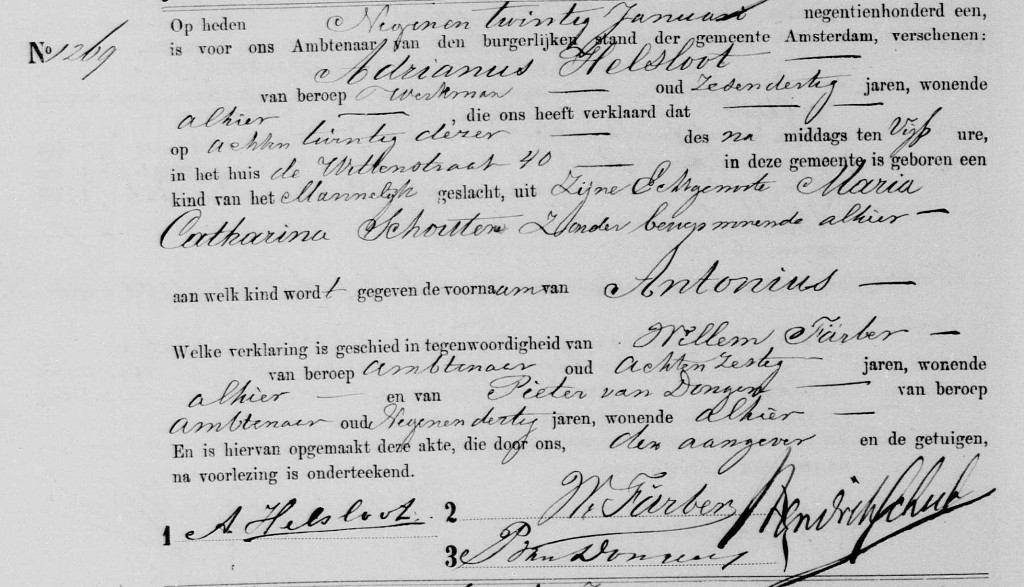 Op heden Negenen twintig Januari negentienhonderd een,
No 1269 is voor ons Ambtenaar van den burgerlijken stand der gemeente Amsterdam, verschenen:
Adrianus Helsloot —
van beroep werkman — oud Zesendertig jaren, wonende
alhier — , die ons heeft verklaard dat — —
op achten twintig dezer — des na middags ten Vijf ure,
in het huis de Wittenstraat 40 — in deze gemeente is geboren een
kind van het Mannelijk geslacht, uit Zijne Echtgenoote Maria
Catharina Schoutten Zonder beroep wonende alhier —
aan welk kind wordt gegeven de voornaam van Antonius —
Welke verklaring is geschied in tegenwoordigheid van Willem Färber —
van beroep ambtenaar oud achten zestig jaren, wonende
alhier — en van Pieter van Dongen — van beroep
ambtenaar oud Negenendertig jaren, wonende alhier —
En is hiervan opgemaakt deze akte, die door ons, den aangever en de getuigen,
na voorlezing is onderteekend.
1 A Helsloot. 2 W. Färber
3 P van Dongen